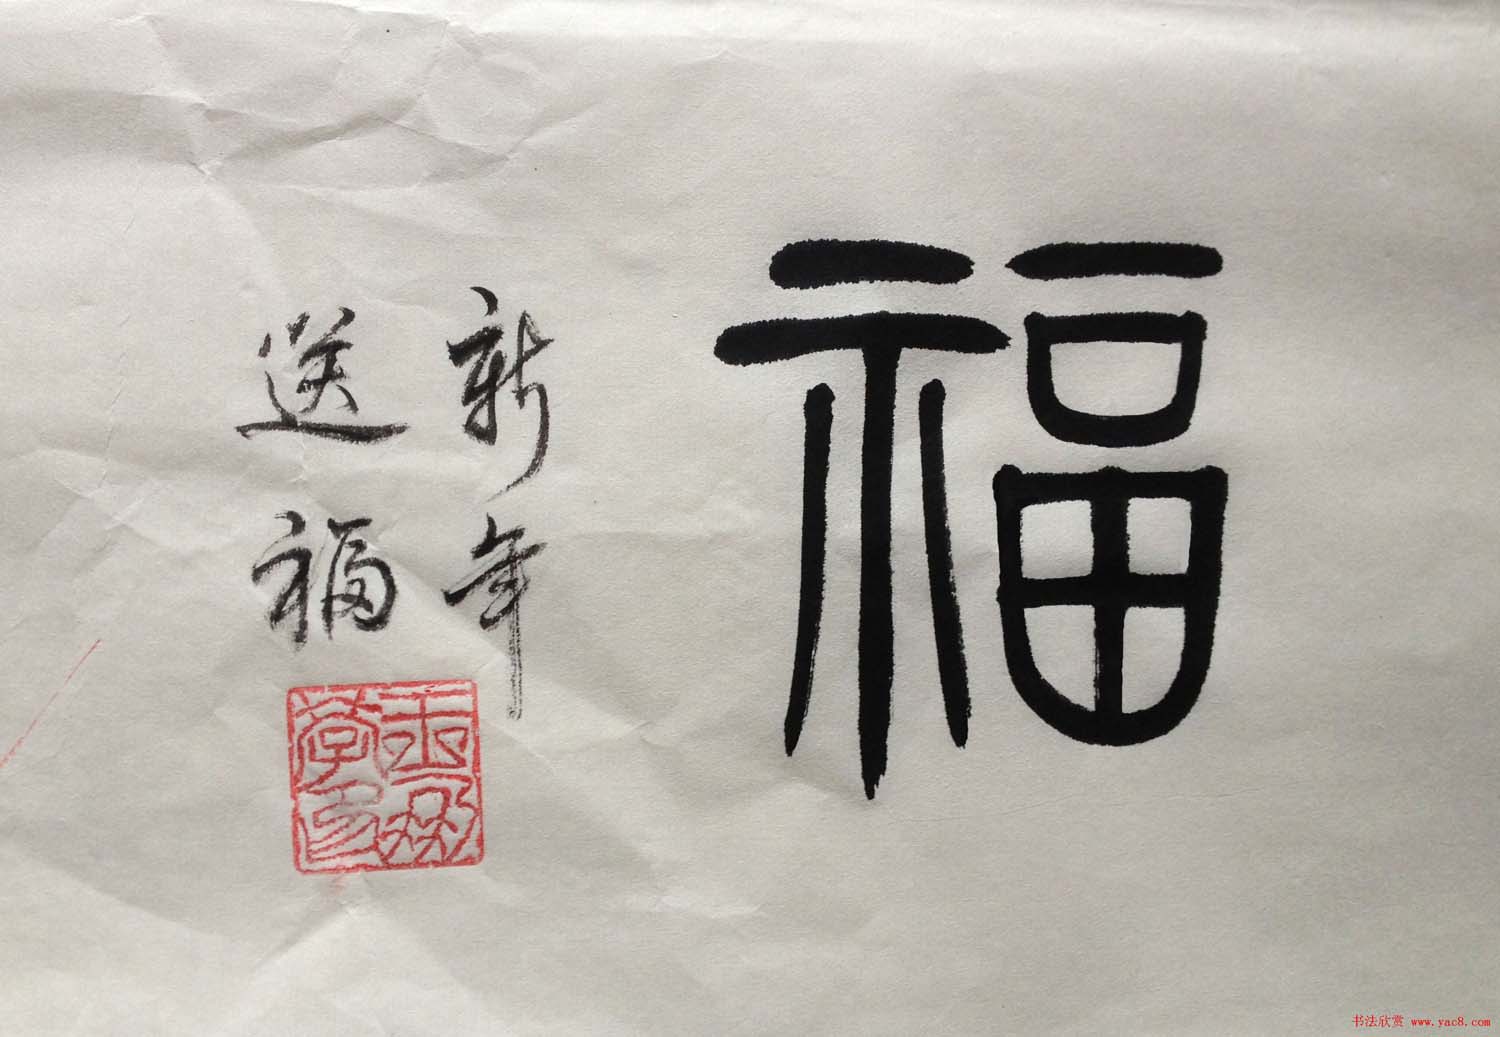 福
新年
送福
书法欣赏 www.yac8.com